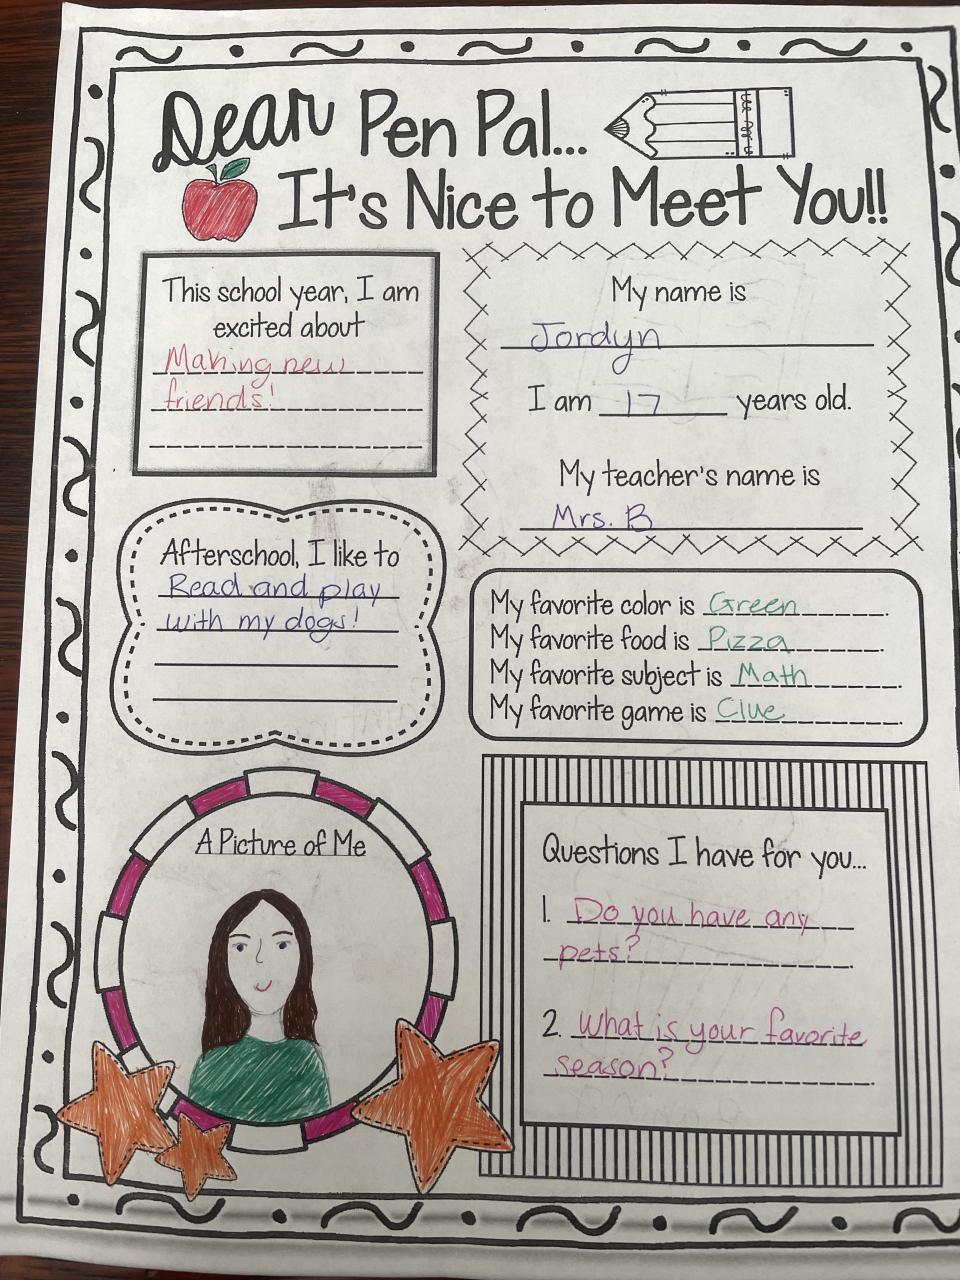 Dear Pen Pal...
It's Nice to Meet You!!
This school year, I am
excited about
Making new
friends!
My name is
Jordyn
I am 17 years old.
My teacher's name is
Mrs. B
Afterschool, I like to
Read and play
with my dogs!
My favorite color is Green.
My favorite food is Pizza.
My favorite subject is Math.
My favorite game is Clue.
A Picture of Me
Questions I have for you...
1. Do you have any
pets?.
2. What is your favorite
season?.